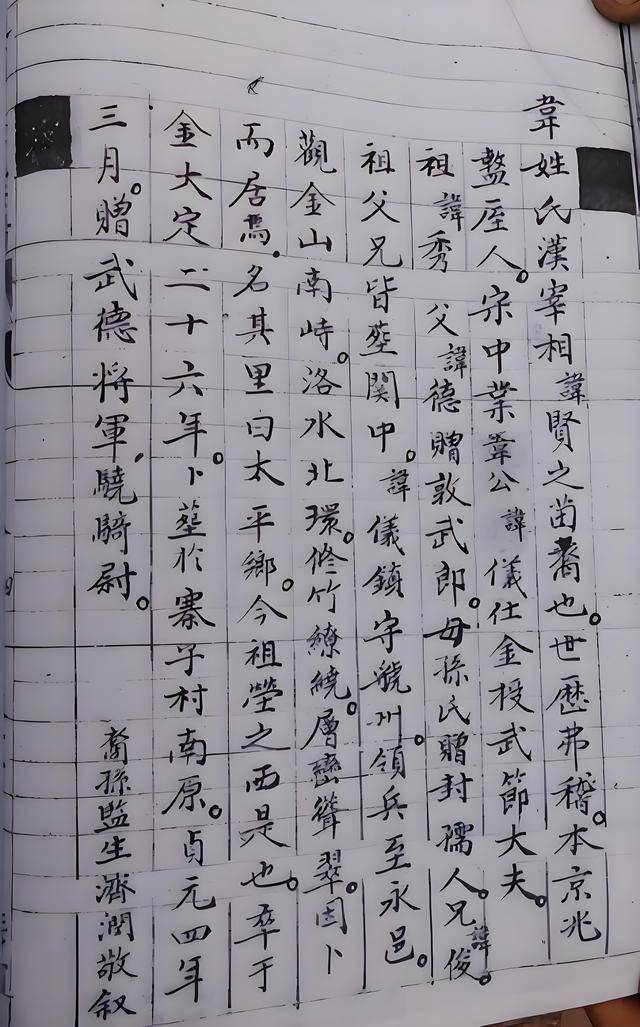 韋姓氏漢宰相諱賢之苗裔也。世歷弗稽。本京兆
盩厔人。宋中業韋公諱儀仕金授武節大夫。
祖諱秀父諱德贈敦武郎。母孫氏贈封孺人。兄諱俊。
祖父兄皆塟関中。諱儀鎮守虢州。領兵至永邑。
觀金山南峙。洛水北環。修竹繚繞。層巒聳翠。因卜
而居焉。名其里曰太平鄉。今祖塋之西是也。卒于
金大定二十六年。卜塟於寨子村南原。貞元四年
三月。贈武德将軍，驍騎尉。
裔孫監生濟潤敬叙